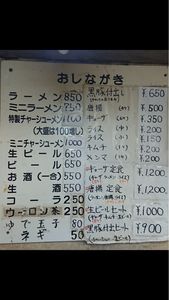 おしながき
ラーメン 850
ミニラーメン 750
特製チャーシューメン 1100
(大盛は100増し)
ミニチャーシューメン 1000
生ビール 650
ビール 650
お酒(一合) 550
生酒 550
コーラ 250
ウーロン茶 250
ゆで玉子 80
ネギ 50
黒豚付出し ¥650
唐揚 ¥500
ギョーザ ¥350
ライス ¥200
ライス ¥150
キムチ ¥200
メンマ ¥200
ギョーザ定食 ¥1,200
唐揚定食 ¥1,200
生ビールセット ¥1000
黒豚付出セット ¥900